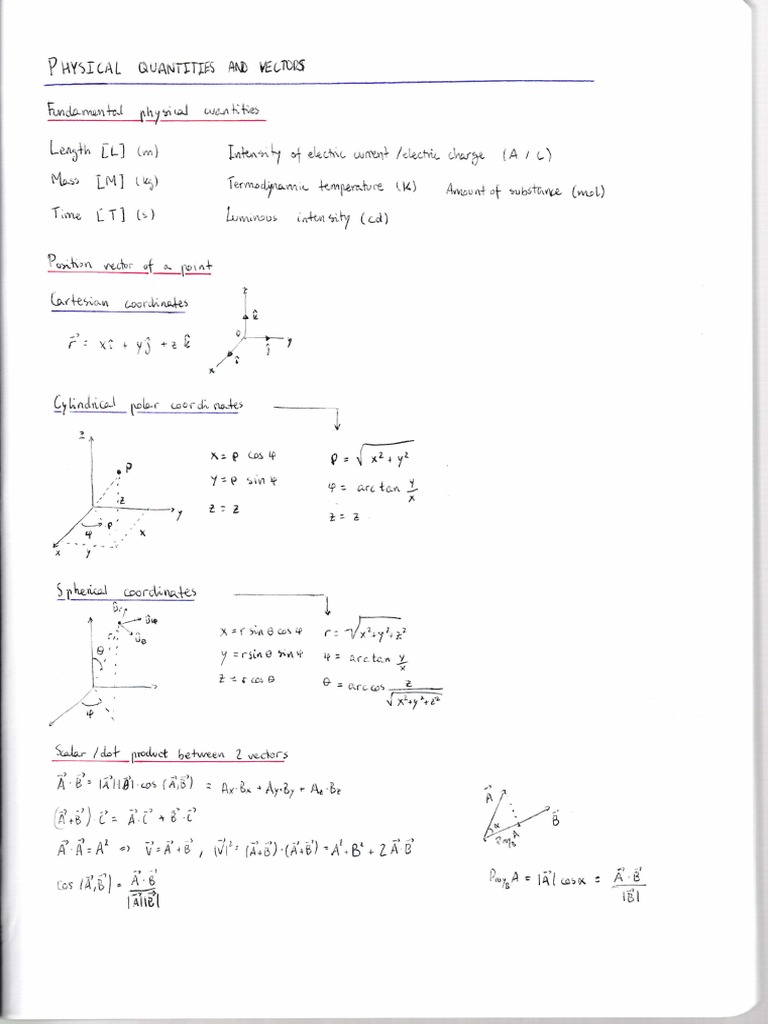 PHYSICAL QUANTITIES AND VECTORS
Fundamental physical wuantities
Length [L] (m) Intensity of electric current /electric charge (A / C)
Mass [M] (kg) Termodynamic temperature (K) Amount of substance (mol)
Time [T] (s) Luminous intensity (cd)
Position vector of a point
Cartesian coordinates
r⃗ = xî + yĵ + z k̂
z k̂ 0 ĵ y î x
Cylindrical polar coordinates
z P z y φ ρ x x y
x = ρ cos φ ρ = √(x² + y²)
y = ρ sin φ φ = arctan y/x
z = z z = z
Spherical coordinates
ûr ûφ ûθ r θ φ
x = r sin θ cos φ r = √(x²+y²+z²)
y = r sin θ sin φ φ = arctan y/x
z = r cos θ θ = arc cos z/√(x²+y²+z²)
Scalar /dot product between 2 vectors
A⃗ · B⃗ = |A⃗||B⃗| · cos (A⃗,B⃗) = Ax·Bx + Ay·By + Az·Bz
(A⃗+B⃗)·C⃗ = A⃗·C⃗ + B⃗·C⃗
A⃗ · A⃗ = A² ⇒ V⃗ = A⃗ + B⃗ , |V⃗|² = (A⃗+B⃗)·(A⃗+B⃗) = A² + B² + 2 A⃗·B⃗
cos (A⃗,B⃗) = A⃗·B⃗/|A⃗||B⃗|
A⃗ α B⃗ Proy_B A
Proy_B A = |A⃗| cos α = A⃗·B⃗/|B⃗|